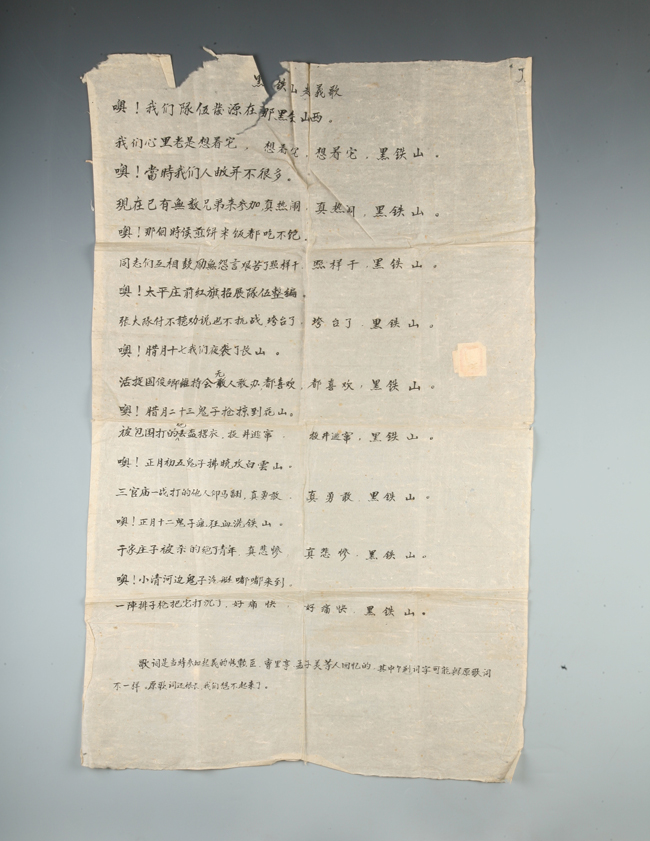 黑铁山起義歌
噢！我们隊伍發源在那黑鉄山西。
我们心里老是想着它，想着它，想着它，黑铁山。
噢！當時我们人数并不很多。
现在已有無数兄弟来参加真热闹，真热闹，黑铁山。
噢！那個時侯煎饼米饭都吃不饱。
同志们互相鼓励無怨言艰苦了照样干，照样干，黑铁山。
噢！太平庄前紅旗招展隊伍整编。
張大隊付不聽劝说也不抗战垮台了，垮台了，黑铁山。
噢！腊月十七我们夜袭了长山。
活捉国俊卿維持会无人敢办都喜欢，都喜欢，黑铁山。
噢！腊月二十三鬼子抢掠到花山。
被包围打的丢盔摺衣，投井逃窜，投井逃窜，黑铁山。
噢！正月初五鬼子拂晓攻白雲山。
三官庙一战打的他人仰马翻，真勇敢，真勇敢，黑铁山。
噢！正月十二鬼子疯狂血洗铁山。
于家庄子被杀的绝了青年，真悲惨，真悲惨，黑铁山。
噢！小清河边鬼子汽艇嘟嘟来到。
一陣排子枪把它打沉了，好痛快，好痛快，黑铁山。
歌词是当時参加起義的 曹里亭 等人回忆的，其中个别词字可能與原歌词
不一样。原歌词 我们想不起来了。